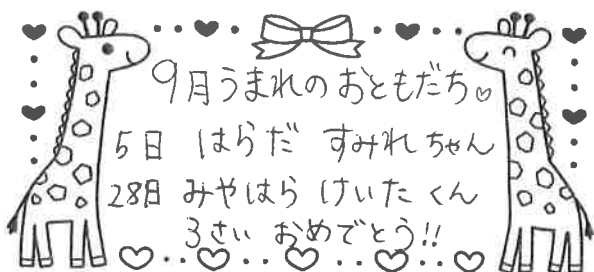 9月うまれのおともだち♡
5日 はらだ すみれちゃん
28日 みやはら けいた くん
3さい おめでとう!!